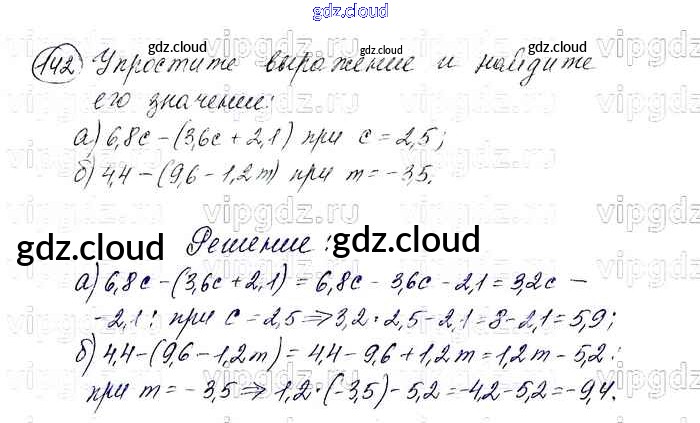 gdz.cloud
gdz.cloud gdz.cloud gdz.cloud
142 Упростите выражение и найдите
его значение:
а) 6,8c - (3,6c + 2,1) при c = 2,5;
б) 4,4 - (9,6 - 1,2m) при m = -3,5.
vipgdz.ru
gdz.cloud gdz.cloud
Решение:
а) 6,8c - (3,6c + 2,1) = 6,8c - 3,6c - 2,1 = 3,2c -
- 2,1; при c = 2,5 ⇒ 3,2 · 2,5 - 2,1 = 8 - 2,1 = 5,9;
б) 4,4 - (9,6 - 1,2m) = 4,4 - 9,6 + 1,2m = 1,2m - 5,2;
при m = -3,5 ⇒ 1,2 · (-3,5) - 5,2 = -4,2 - 5,2 = -9,4.